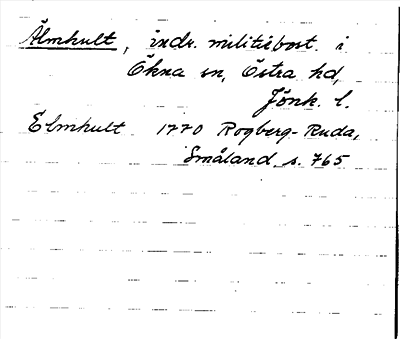 Älmhult, indr. militiebost. i
Ökna sn, Östra hd,
Jönk. l.
Elmhult 1770 Rogberg-Ruda,
Småland s. 765